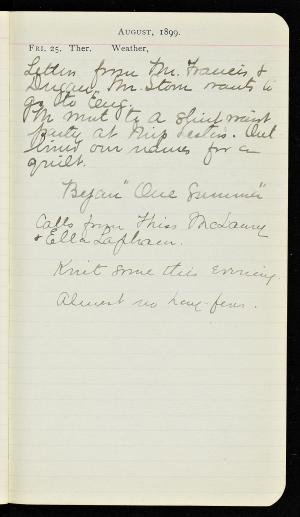 August, 1899.
Fri. 25. Ther. Weather,
Letters from Mr. Francis &
Mr. Storn wants to
go to Eng.
to a shirt waist
party at Miss
our names for a
quilt.
Began "One Summer"
Calls from Miss McLaury
& Ella Lapham.
Knit some this evening.
Almost no hay-fever.